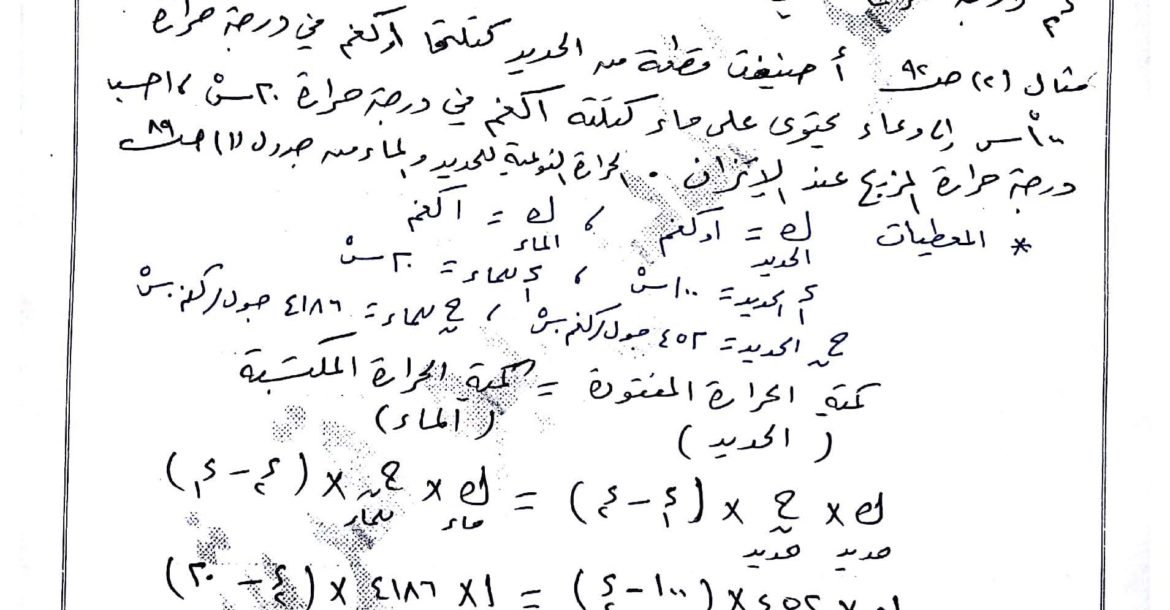 مثال (٢) صـ٩٢ أضيفت قطعة من الحديد كتلتها ا,كغم في درجة حرارة
١٠٠ْس إلى وعاء يحتوى على ماء كتلته ١كغم في درجة حرارة ٢٠ سْ ، احسب
درجة حرارة المزيج عند الإتزان . الحرارة النوعية للحديد والماء من جدول (١) صـ٨٩
* المعطيات ك الحديد = ا,كغم ، ك الماء = ١كغم
د١ الحديد = ١٠٠سْ ، د١ للماء = ٢٠ سْ
حـن الحديد = ٤٥٢ جول/كغم.سْ ، حـن للماء = ٤١٨٦ جول/كغم.سْ
كمية الحرارة المفقودة = كمية الحرارة المكتسبة
(الحديد) (الماء)
ك حديد × حـن حديد × (د١ - د٢) = ك ماء × حـن للماء × (د٢ - د١)
× ٤٥٢ × (١٠٠ - د٢) = ١ × ٤١٨٦ × (د٢ - ٢٠)